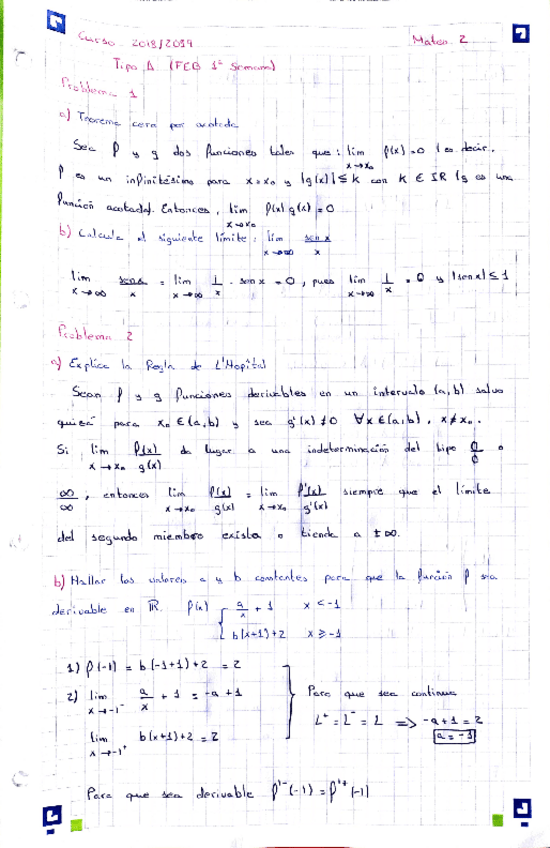 Curso 2018/2019 Mates 2
Tipo A (FEB 1ª Semana)
Problema 1
a) Teorema cero por acotada
Sea f y g dos funciones tales que : lim f(x)=0 (es decir,
x→x₀
f es un infinitésimo para x=x₀ y |g(x)|≤k con k ∈ IR (g es una
función acotada). Entonces, lim f(x)g(x)=0
x→x₀
b) Calcula el siguiente límite: lim sen x / x
x→∞
lim senx/x = lim 1/x · sen x = 0, pues lim 1/x = 0 y |senx|≤1
x→∞ x→∞ x→∞
Problema 2
a) Explica la Regla de L'Hopital
Sean f y g funciones derivables en un intervalo (a,b) salvo
quizá para x₀ ∈(a,b) y sea g'(x)≠0 ∀x∈(a,b), x≠x₀.
Si lim f(x)/g(x) da lugar a una indeterminación del tipo 0/0 o
x→x₀
∞/∞, entonces lim f(x)/g(x) = lim f'(x)/g'(x) siempre que el límite
x→x₀ x→x₀
del segundo miembro exista o tienda a ±∞.
b) Hallar los valores a y b constantes para que la función f sea
derivable en IR. f(x) { a/x + 1 x < -1
b(x+1)+2 x ≥ -1
1) f(-1) = b(-1+1)+2 = 2
2) lim a/x + 1 = -a+1
x→-1⁻
Para que sea continua
lim b(x+1)+2 = 2
x→-1⁺
L⁺ = L⁻ = L ⇒ -a+1=2
a=-1
Para que sea derivable f'⁻(-1) = f'⁺(-1)